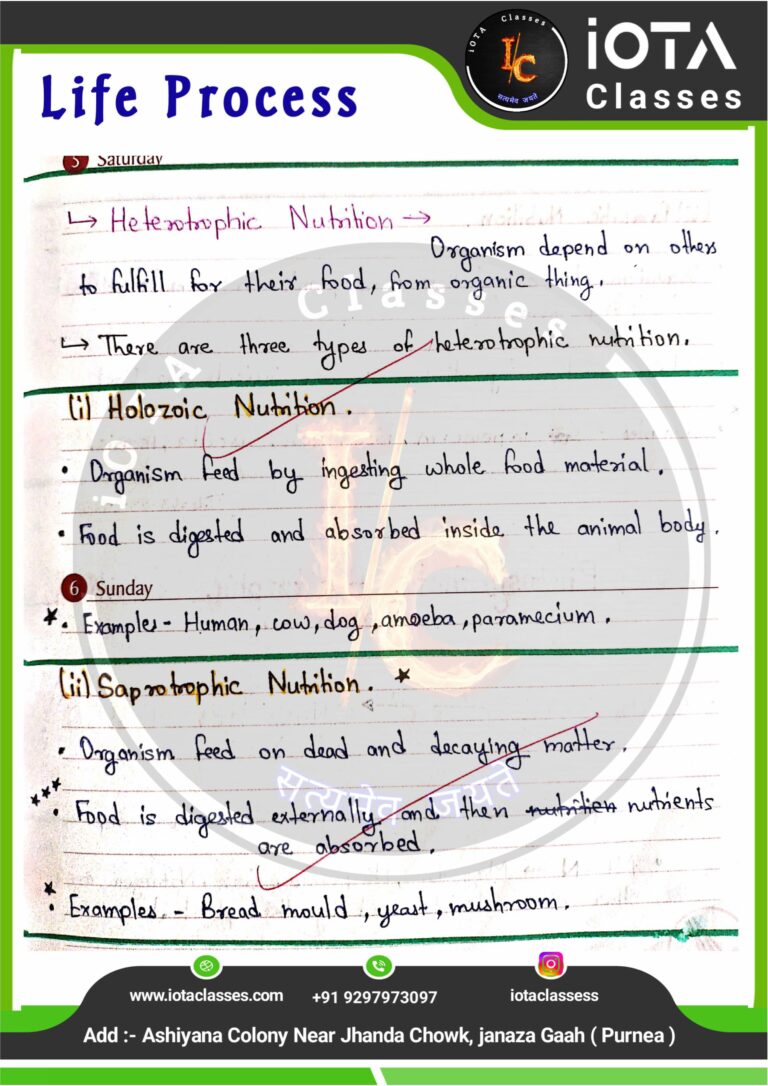 iOTA Classes
I/C
सत्यमेव जयते
iOTA
Classes
Life Process
5 Saturday
↳ Heterotrophic Nutrition →
Organism depend on others
to fulfill for their food, from organic thing.
↳ There are three types of heterotrophic nutrition.
(i) Holozoic Nutrition.
• Organism feed by ingesting whole food material.
• Food is digested and absorbed inside the animal body.
6 Sunday
★• Examples - Human, cow, dog, amoeba, paramecium.
(ii) Saprotrophic Nutrition. ★
• Organism feed on dead and decaying matter.
★★★
• Food is digested externally and then nutrition nutrients
are absorbed.
★
• Examples - Bread mould, yeast, mushroom.
iOTA Classes
I/C
सत्यमेव जयते
www.iotaclasses.com +91 9297973097 iotaclassess
Add :- Ashiyana Colony Near Jhanda Chowk, janaza Gaah ( Purnea )